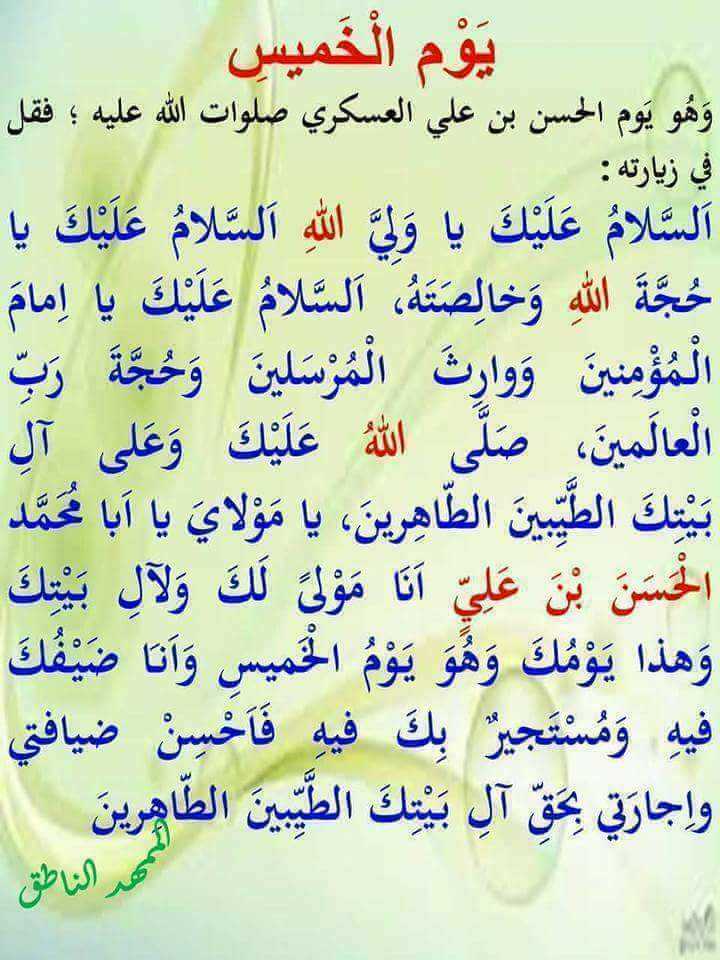 يَوْم الْخَميسِ
وَهُو يَوم الحسن بن علي العسكري صلوات الله عليه ؛ فقل
في زيارته :
اَلسَّلامُ عَلَيْكَ يا وَلِيَّ اللهِ اَلسَّلامُ عَلَيْكَ يا
حُجَّةَ اللهِ وَخالِصَتَهُ، اَلسَّلامُ عَلَيْكَ يا اِمامَ
الْمُؤْمِنينَ وَوارِثَ الْمُرْسَلينَ وَحُجَّةَ رَبِّ
الْعالَمينَ، صَلَّى اللهُ عَلَيْكَ وَعَلى آلِ
بَيْتِكَ الطَّيِّبينَ الطّاهِرينَ، يا مَوْلايَ يا اَبا مُحَمَّد
الْحَسَنَ بْنَ عَلِيٍّ اَنَا مَوْلىً لَكَ وَلآلِ بَيْتِكَ
وَهذا يَوْمُكَ وَهُوَ يَوْمُ الْخَميسِ وَاَنَا ضَيْفُكَ
فيهِ وَمُسْتَجيرٌ بِكَ فيهِ فَاَحْسِنْ ضيافتي
واِجارَتي بِحَقِّ آلِ بَيْتِكَ الطَّيِّبينَ الطّاهِرينَ
الممهد الناطق